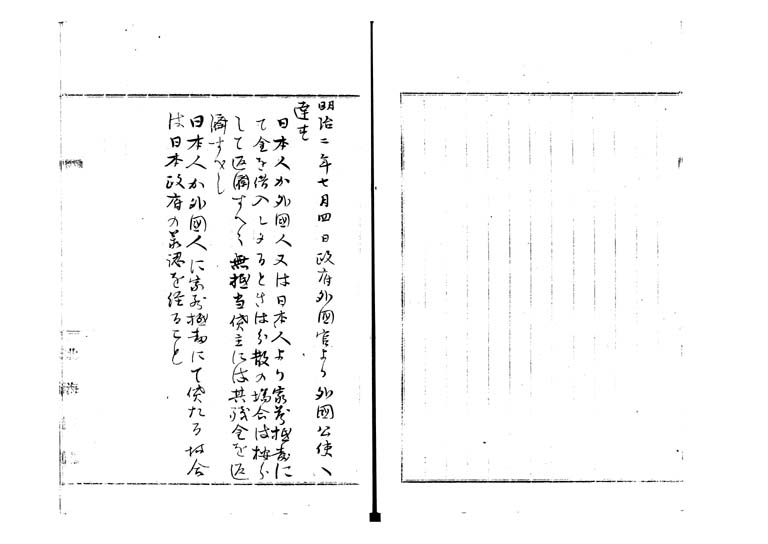 明治二年七月四日政府外國官より外國公使へ
達す
日本人か外國人又は日本人より家屋抵当に
て金を借入しタるときは分散の場合は
して返濟すへく無抵当貸主には其残金を返
濟すへし
日本人か外國人に家屋抵当にて貸たる場合
は日本政府の承認を経ること
北海